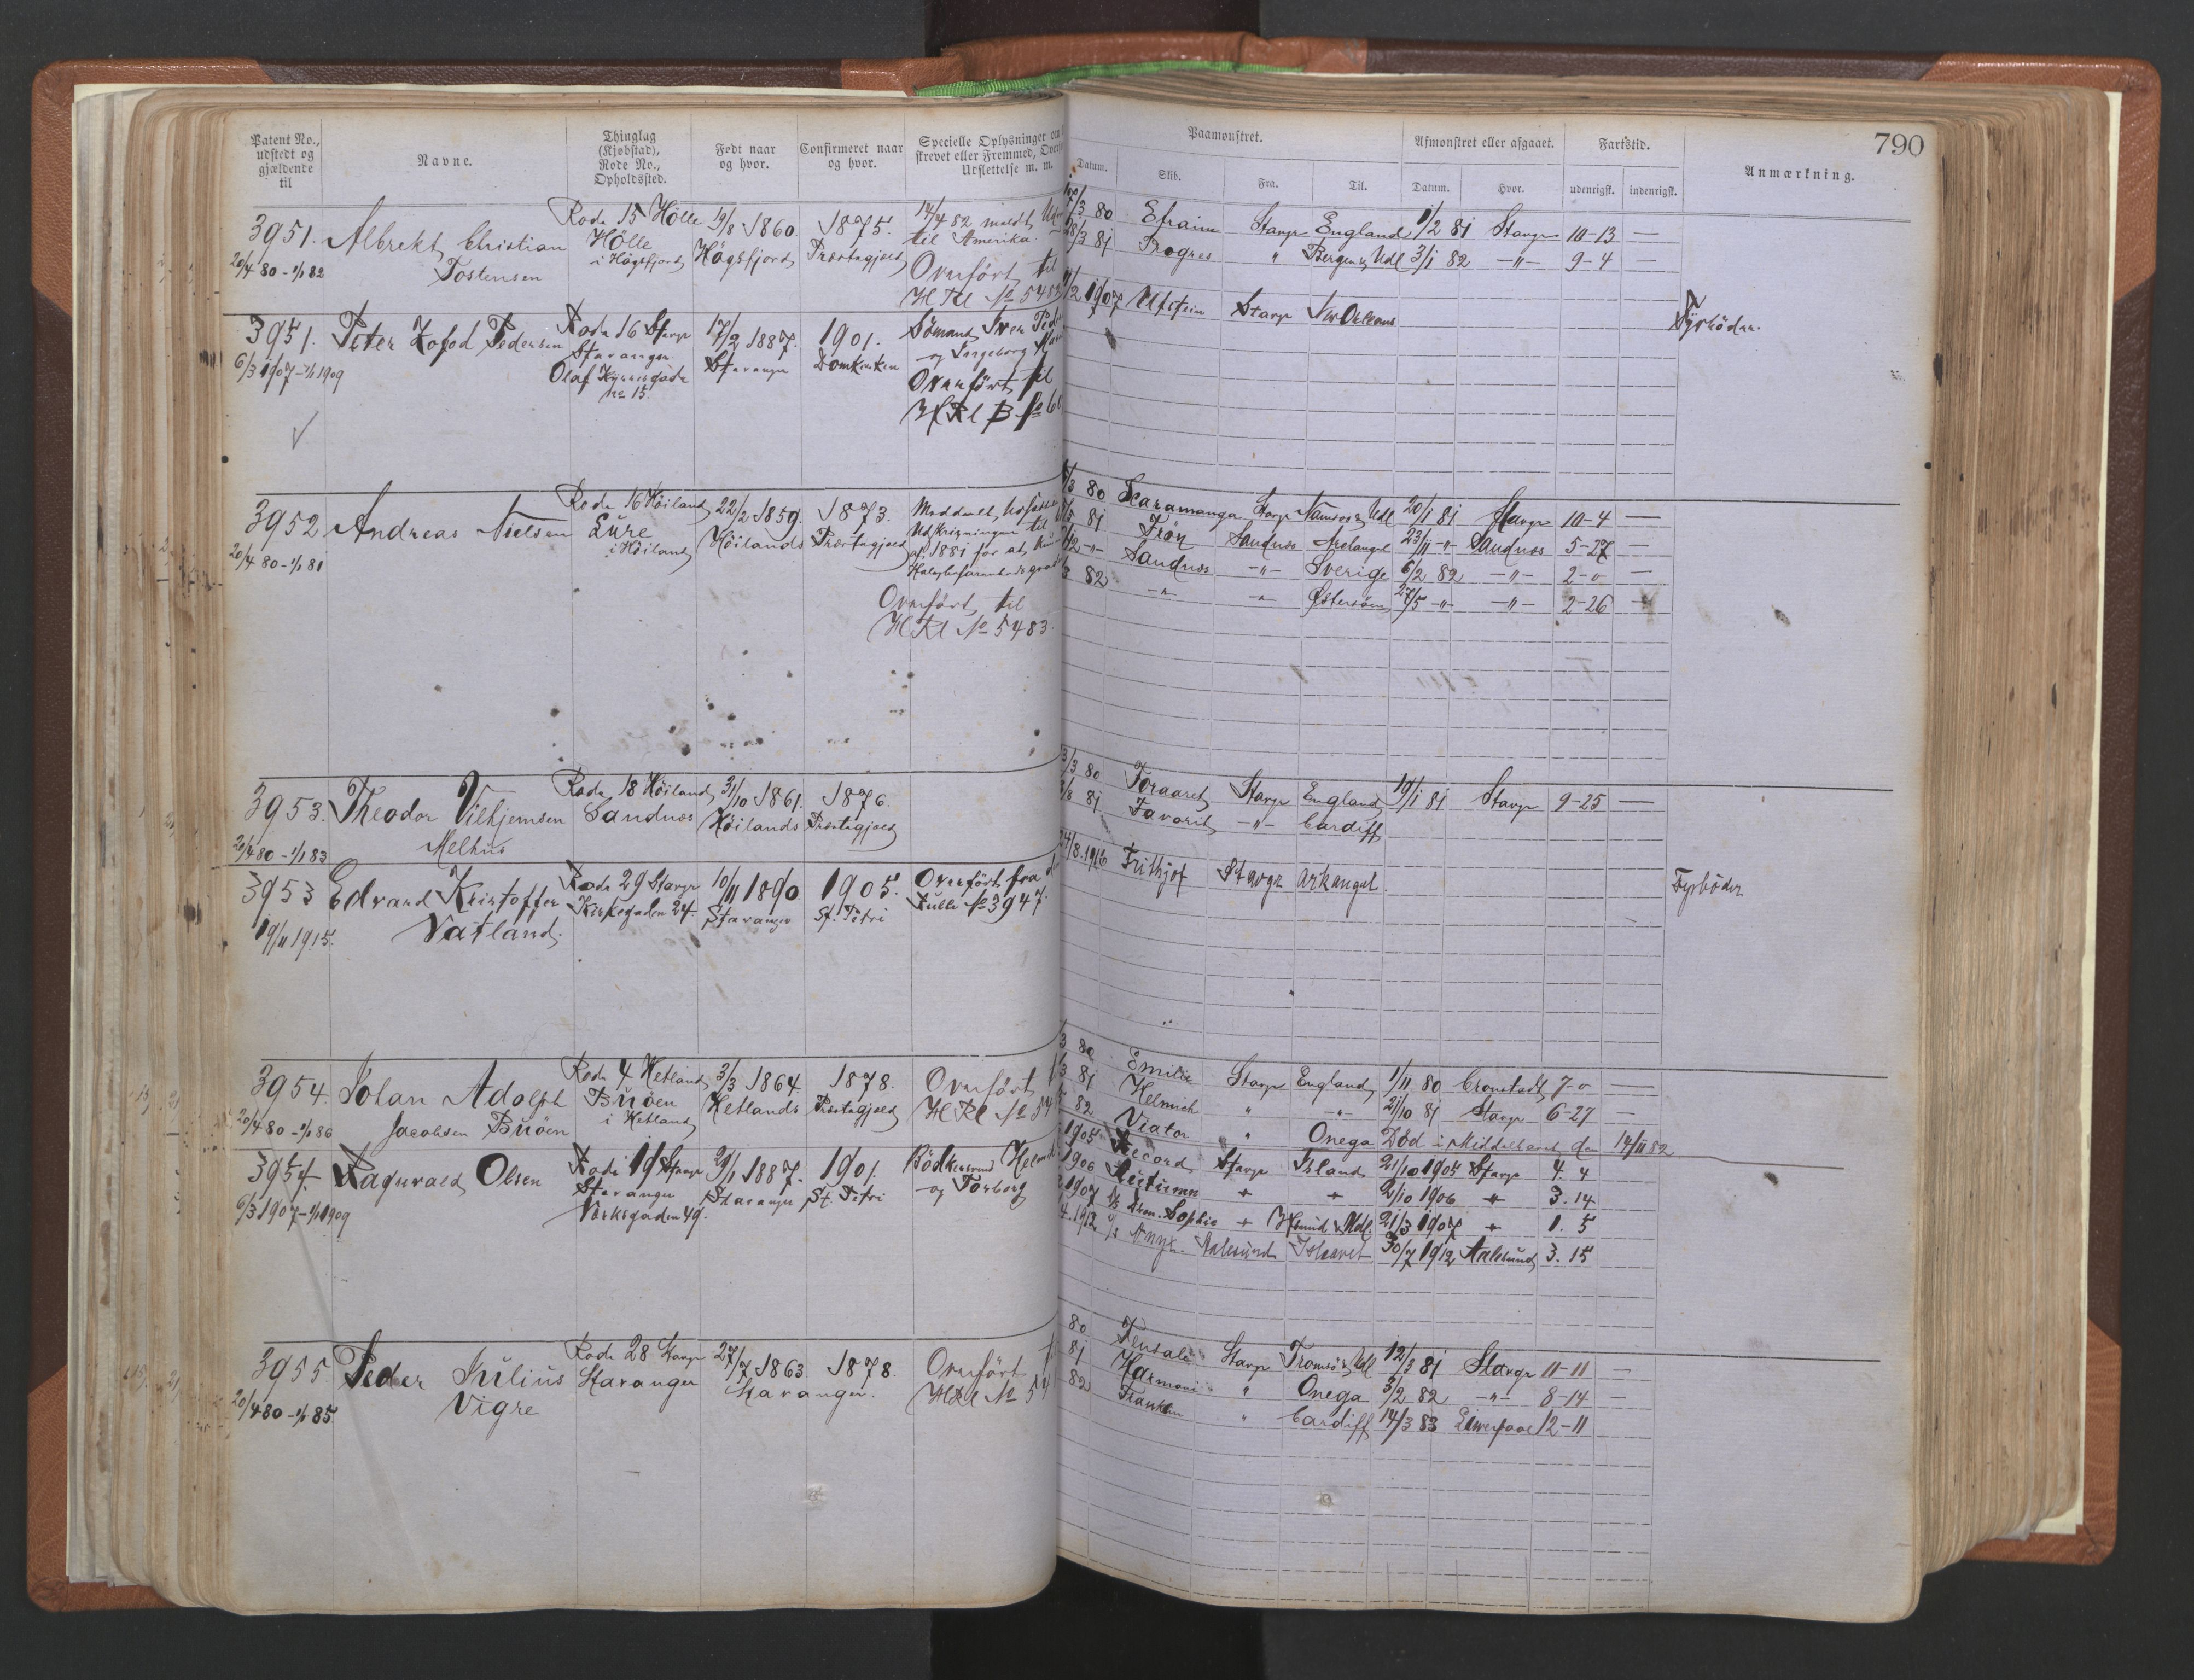 790
Patent No., udstedt og gjældende til
Navne.
Thinglag (Kjøbstad), Rode No., Opholdssted.
Født naar og hvor.
Confirmeret naar og hvor.
Specielle Oplysninger om
strevet eller Fremmed,
Udslettelse m. m.
Paamønstret.
Datum. Skib. Fra. Til.
Afmønstret eller afgaaet.
Datum. Hvor.
Fartstid.
udenrigsk. indenrigsk.
Anmærkning.
3951. Albrekt Christian Tostensen
20/4 80 - 1/1 82
Rode 15 Hölle
Hölle
i Högsfjord
19/8 1860.
Högsfjord
1875.
Præstegjeld
14/4 82 meldt
til Amerika.
Overført til
H Rl No 5482
80 Efraim Stavgr England 1/2 81 Stavgr 10-13 —
28/3 81 Progres " Bergen & Udl 3/1 82 -"- 9-4 —
3951. Peter Kofod Pedersen
6/3 1907 - 1/1 1909
Rode 16 Stavgr
Stavanger
Olaf Kyrresgade
No 15.
17/2 1887.
Stavanger
1901.
Domkirken
Sömand Iver
og Ingeborg
Overført til
H Rl B No
1907 Utstein Stavgr New Orleans
Fyrböder.
3952 Andreas Nielsen
20/4 80 - 1/1 81
Rode 16 Höiland
Lure
i Höiland
22/2 1859.
Höilands
1873.
Præstegjeld
Meddelt Udsættelse
Udskrivningen til
af 1881 for at
Overført til
H Rl No 5483.
80 Scaramanga Stavgr Namsos & Udl 20/1 81 Stavgr 10-4 —
81 Frön Sandnæs Archangel 23/11 -"- Sandnæs 5-27 —
-"- Sandnæs -"- Sverige 6/2 82 -"- 2-0 —
82 -"- -"- Østersöen 27/5 -"- -"- 2-26
3953. Theodor Vilhjemsen Melhus
20/4 80 - 1/1 83
Rode 18 Höiland
Sandnæs
31/10 1861.
Höilands
1876.
Præstegjeld
3/3 80 Foraaret Stavgr England 19/1 81 Stavgr 9-25 —
81 Favorit -"- Cardiff
3953 Edvard Kristoffer Vatland.
19/11 1915.
Rode 29 Stavgr
Kirkegaden 24.
10/11 1890
Stavanger
1905.
St. Petri
Overført fra
Rulle No 3947.
24/8. 1916 Frithjof Stavgr Arkangel.
Fyrböder
3954. Johan Adolph Jacobsen Buöen
20/4 80 - 1/1 86
Rode 4 Hetland
Buöen
i Hetland
3/3 1864.
Hetlands
1878.
Præstegjeld
Overført
H Rl No 54
80 Emilie Stavgr England 1/11 80 Cronstadt 7-0 —
81 Helmich " -"- 21/10 81 Stavgr 6-27 —
82 Viator " Onega Død i Middelhavet den 14/11 82
3954. Ragnvald Olsen
6/3 1907 - 1/1 1909
Rode 19 Stavgr
Stavanger
Verksgaden 49.
29/1 1887.
Stavanger
1901.
St. Petri
Bödkersvend
og Torborg
1905 Record Stavgr Island 21/10 1905 Stavgr 4. 4
1906 2/10 1906 " 3. 14
1907 Sophie " 21/3 1907 " 1. 5
1912 Aalesund Ishavet 30/7 1912 Aalesund 3. 15
3955. Peder Julius Vigre
20/4 80 - 1/1 85
Rode 28 Stavgr
Stavanger
27/7 1863
Stavanger.
1878.
Overført
H Rl No 54
80 Stavgr Tromsö & Udl 12/3 81 Stavgr 11-11 —
81 Harmoni " Onega 3/2 82 -"- 8-14 —
82 Franklin " Cardiff 14/3 83 Liverpool 12-11 —